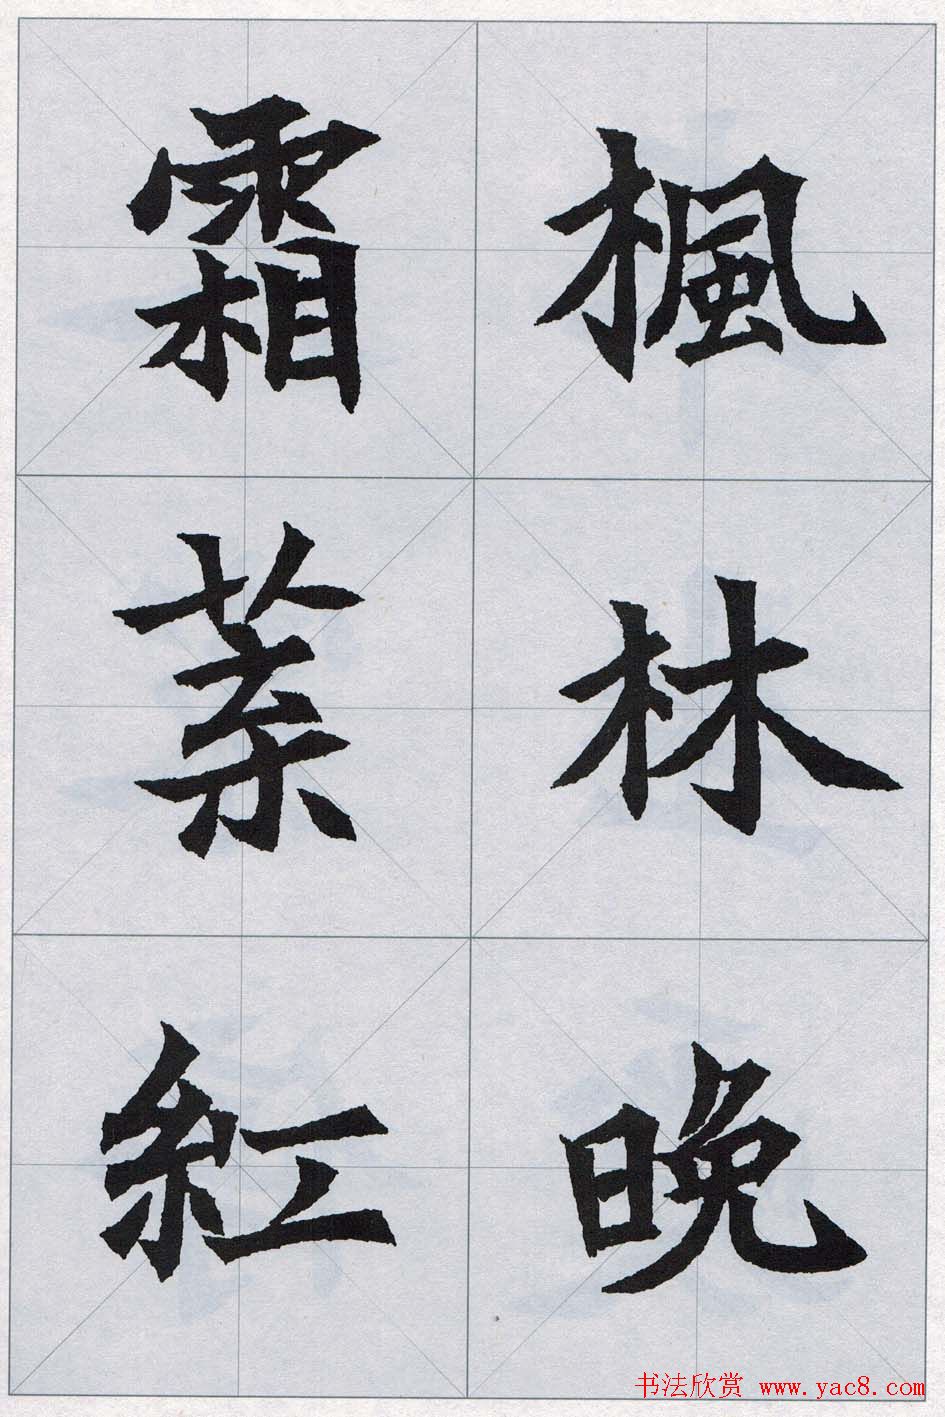 楓林晚
霜葉紅
书法欣赏 www.yac8.com